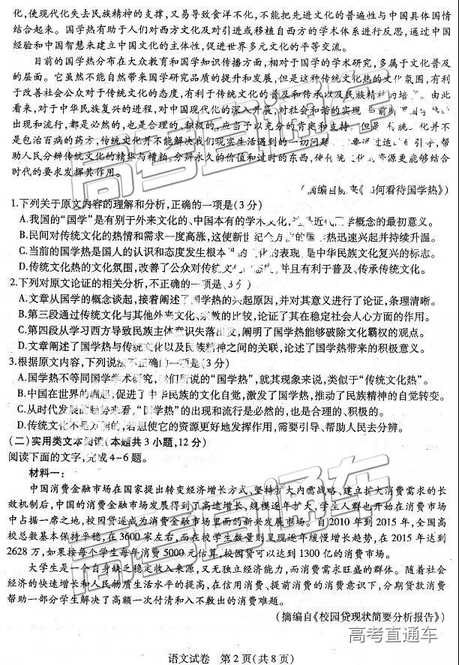 化,使现代化失去民族精神的支撑,又易导致食洋不化,不能把先进文化的普遍性与中国具体国情
结合起来。国学热有助于人们对西方文化及对引进或移植自西方的学术体系进行反思,通过中国
经验和中国智慧来建立中国文化的主体性,促进世界多元文化的平等交流。
目前的国学热分布在大众教育和国学知识传播方面,相对于国学的学术研究,多属于文化普及
的层面。它虽然不能自然带来国学研究品质的提升和发展,但是这种传统文化热的文化氛围,有利
于改善社会公众对于传统文化的态度,有利于传统文化的普及和传承以及民族精神的培 由此
看来,对于中华民族复兴的进程,对中国现代化的深入开展,对社会和谐的实现 当前
出现和流行,都是必然的,也是合理的、积极的,应当予以充分的肯定和支持 传统文化并不
是包治百病的药方,传统文化并不能解决我们现实生活遇到的一切问题 引导,帮
助人民分辨传统文化的精华与糟粕,分辨永久的价值和过时的东西,使传统文化资源更能够结合
时代的要求发挥作用。
(摘编自陈来《如何看待国学热》)
1.下列关于原文内容的理解和分析,正确的一项是(3分)
A.我国的“国学”是有别于外来文化的、中国本有的学术文化,这是近代 概念的最初意义。
B.民间对传统文化的热情和需求一度高涨,这使新世纪 热迅速兴起并持续升温。
C.当前的国学热是国人的认识和态度发生根本 的表现,是中华民族文化复兴的标志。
D.传统文化热的文化氛围,改善了公众对传统文 并且有利于普及、传承传统文化。
2.下列对原文论证的相关分析,不正确的一项是(3分)
A.文章从国学的概念谈起,接着阐述了国学热的兴起原因,并对其意义进行了论述,条理清晰。
B.第三段通过传统文化与其他外来文化、宗教的比较,论证了其在稳定社会人心方面的作用。
C.第四段从学习西方导致民族主体意识失落出发,阐明了国学热能够破除文化霸权的观点。
D.文章阐明了国学热与传统文化以及民族精神之间的关联,论述了国学热带来的积极意义。
3.根据原文内容,下列说法不正确的一项是(3分)
A.国学热不等同国学学术研究,我们所说的“国学热”,就其现象来说,类似于“传统文化热”。
B.中国在世界的崛起,促进了中华民族的文化自觉,激发了国学热,推动了民族精神的自觉转变。
C.从时代发展的趋势来看,“国学热”的出现和流行是必然的,也是合理的、积极的。
D.传统文化不是万能的,若想使它的资源更好地发挥作用,需要引导、帮助人民去分辨。
(二)实用类文本阅读(本题共3小题,12分)
阅读下面的文字,完成4~6题。
材料一:
中国消费金融市场在国家提出转变经济增长方式,坚持扩大内需战略,建立扩大消费需求的长
效机制后,中国的消费金融市场发展得到了高速增长,规模逐年扩大,学生人群也开始在消费市场
中占据一席之地,校园贷逐成为消费金融市场里面的新兴发展市场。自2010年到2015年,全国高
校总数基本保持平稳,在3600家左右,而在校学生数量则呈现逐年缓慢增长趋势,在2015年达到
2628万,如果按每个学生每年消费5000元估算,校园贷可以达到1300亿的消费市场。
大学生是一个自身缺乏稳定收入来源,又无独立经济能力,而消费需求旺盛的群体。随着社会
经济的快速增长和人民物质生活水平的提高,在信用消费、提前消费的消费意识下,分期贷款消费
帮助一部分学生解决了高额一次付清和入不敷出的消费难题。
(摘编自《校园贷现状简要分析报告》)
语文试卷 第2页(共8页)
高考直通车